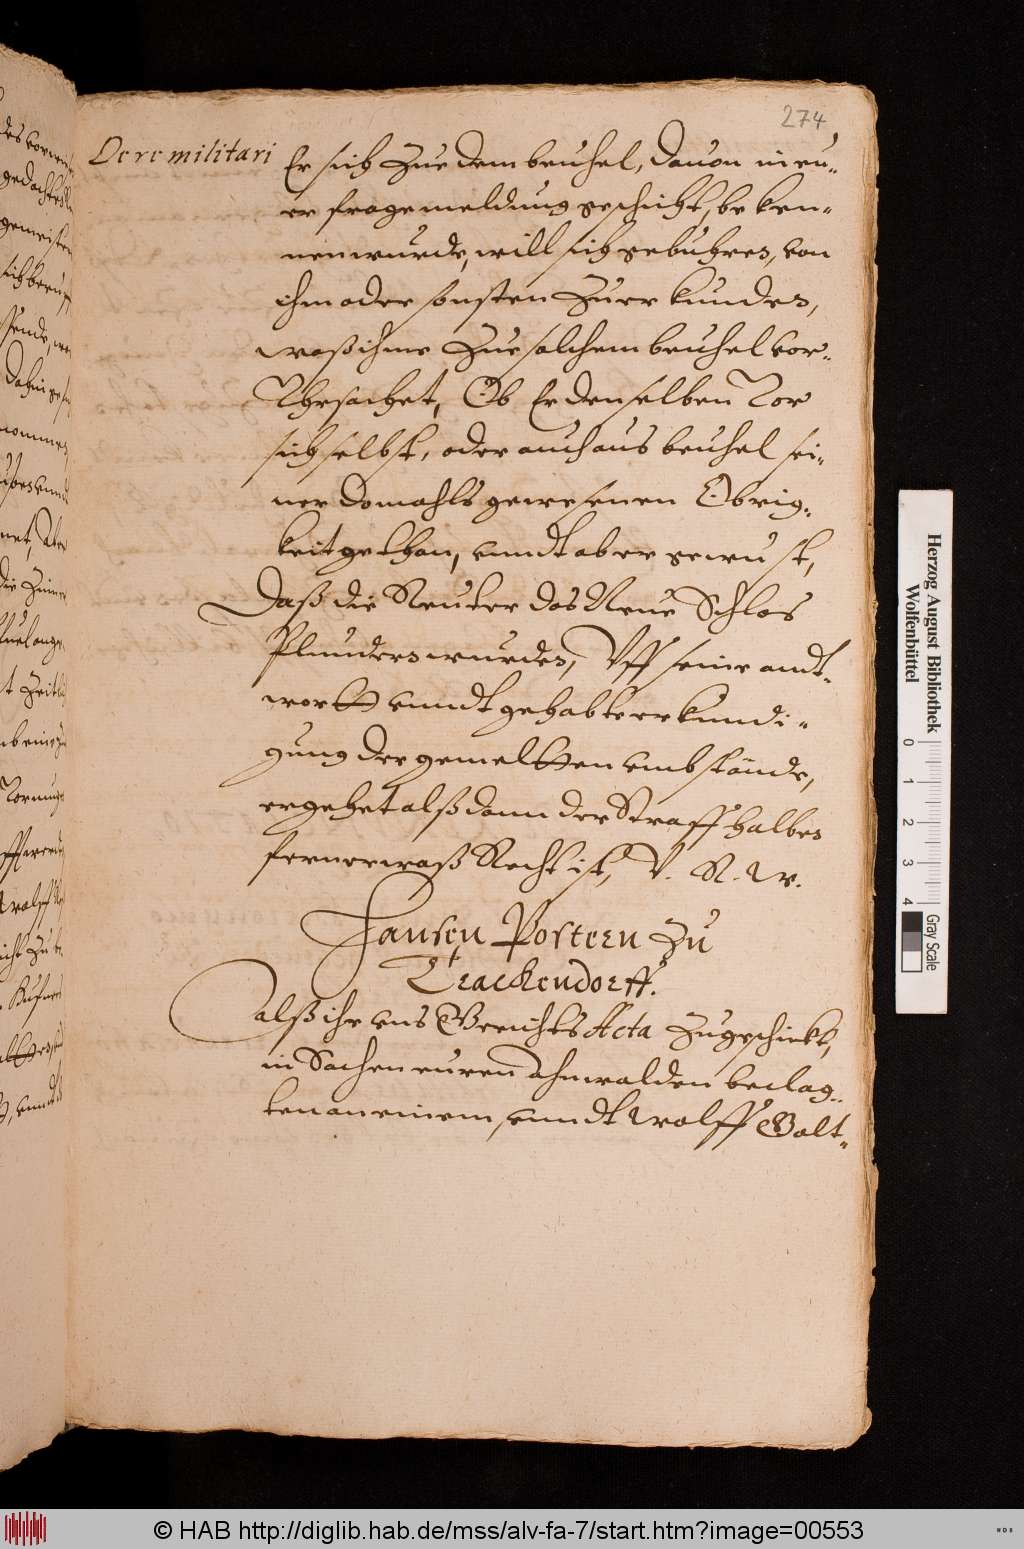 274
De re militari
Er sich Zue dem beuhel, dauon in eu-
er frage meldung geschicht, beken-
nen wurde, will sich gebuhren, von
ihm oder sonsten Zu erkunden,
waß ihme Zue solchem beuhel vor-
Vhrsachet, Ob Er denselben vor
sich selbst, oder auch aus beuhel sei-
ner domahls gewesenen Obrig-
keit gethan, vnndt aber gewust,
Daß die Reuter das Neue Schlos
Plundern wurden, Vff seine andt-
wortt vnndt gehabte erkundi-
gung der gemeltten vmbstände,
ergehet alß dann der Straff halben
ferner waß Recht ist, V. R. W.
Hansen Postern Zu
Trackendorff.
Alß ihr vns Gerichts Acta Zugeschickt,
in Sachen euren Ahnwalden beclag-
ten an einem, vnndt Wolff Balt-
Herzog August Bibliothek
Wolfenbüttel
0 1 2 3 4
Gray Scale
© HAB http://diglib.hab.de/mss/alv-fa-7/start.htm?image=00553